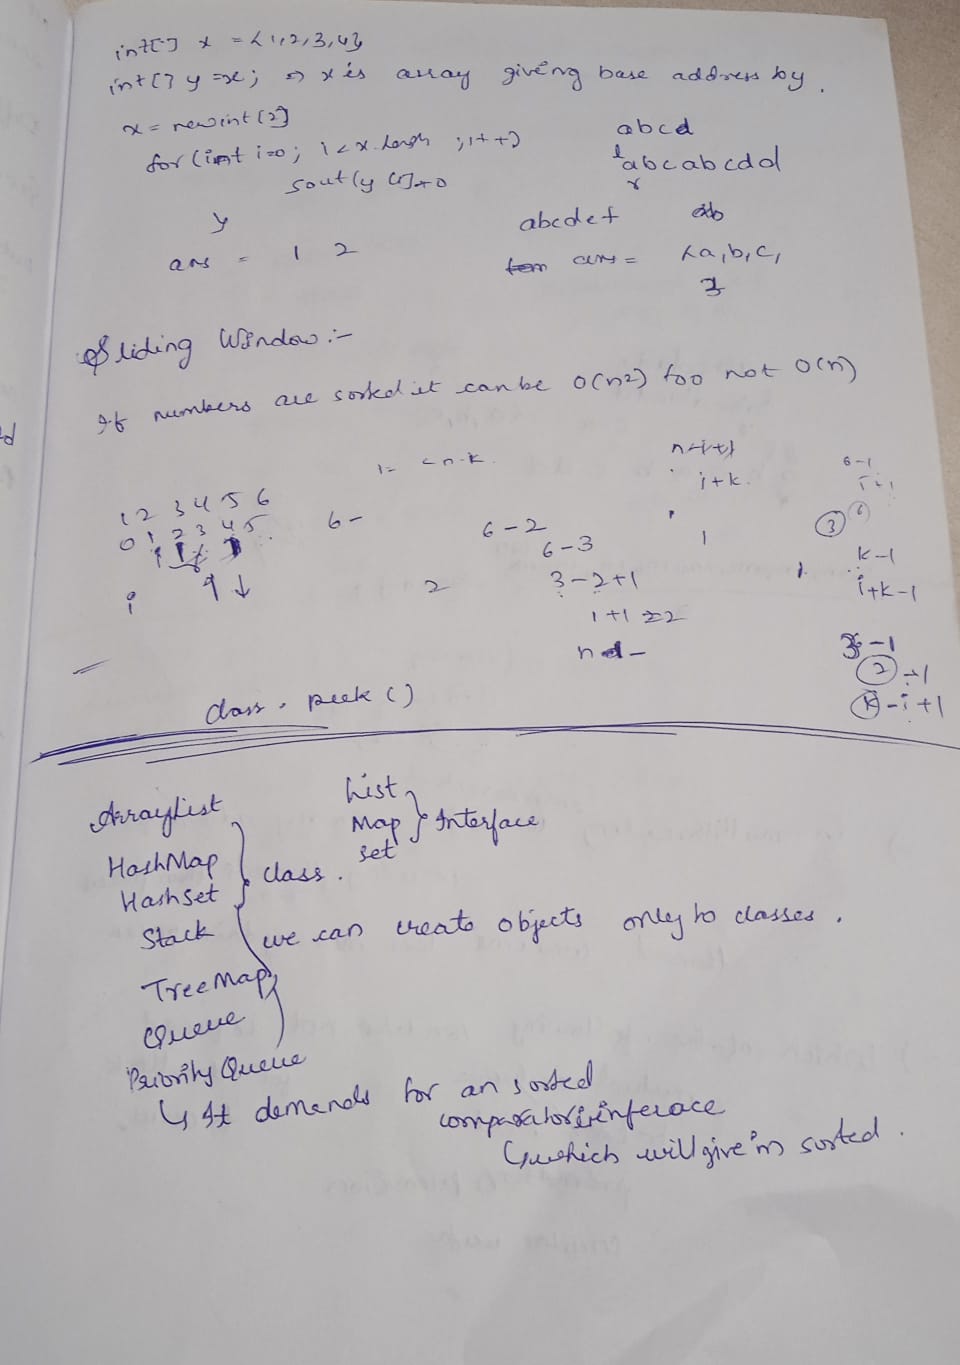 int[] x = {1,2,3,4}
int[] y = x; => x is array giving base address by.
x = new int[2]
for(int i=0; i<x.length ; i++)
sout(y[i]
y
ans = 1 2
abcd
labcabcdd
r
abcdef ab
ans = {a,b,c,
}
Sliding Window:-
If numbers are sorted it can be O(n2) too not O(n)
i= <n-k.
1 2 3 4 5 6
0 1 2 3 4 5
i
6-
2
6-2
6-3
3-2+1
1+1 =2
n
i+k.
1
6-1
3
k-1
i+k-1
-1
2 -1
k-i+1
class. peek()
ArrayList
HashMap
HashSet
Stack
TreeMap
Queue
Priority Queue
class.
List
Map
set
Interface
we can create objects only to classes.
↳ It demands for an sorted
comparator inferace
↳ which will give in sorted.